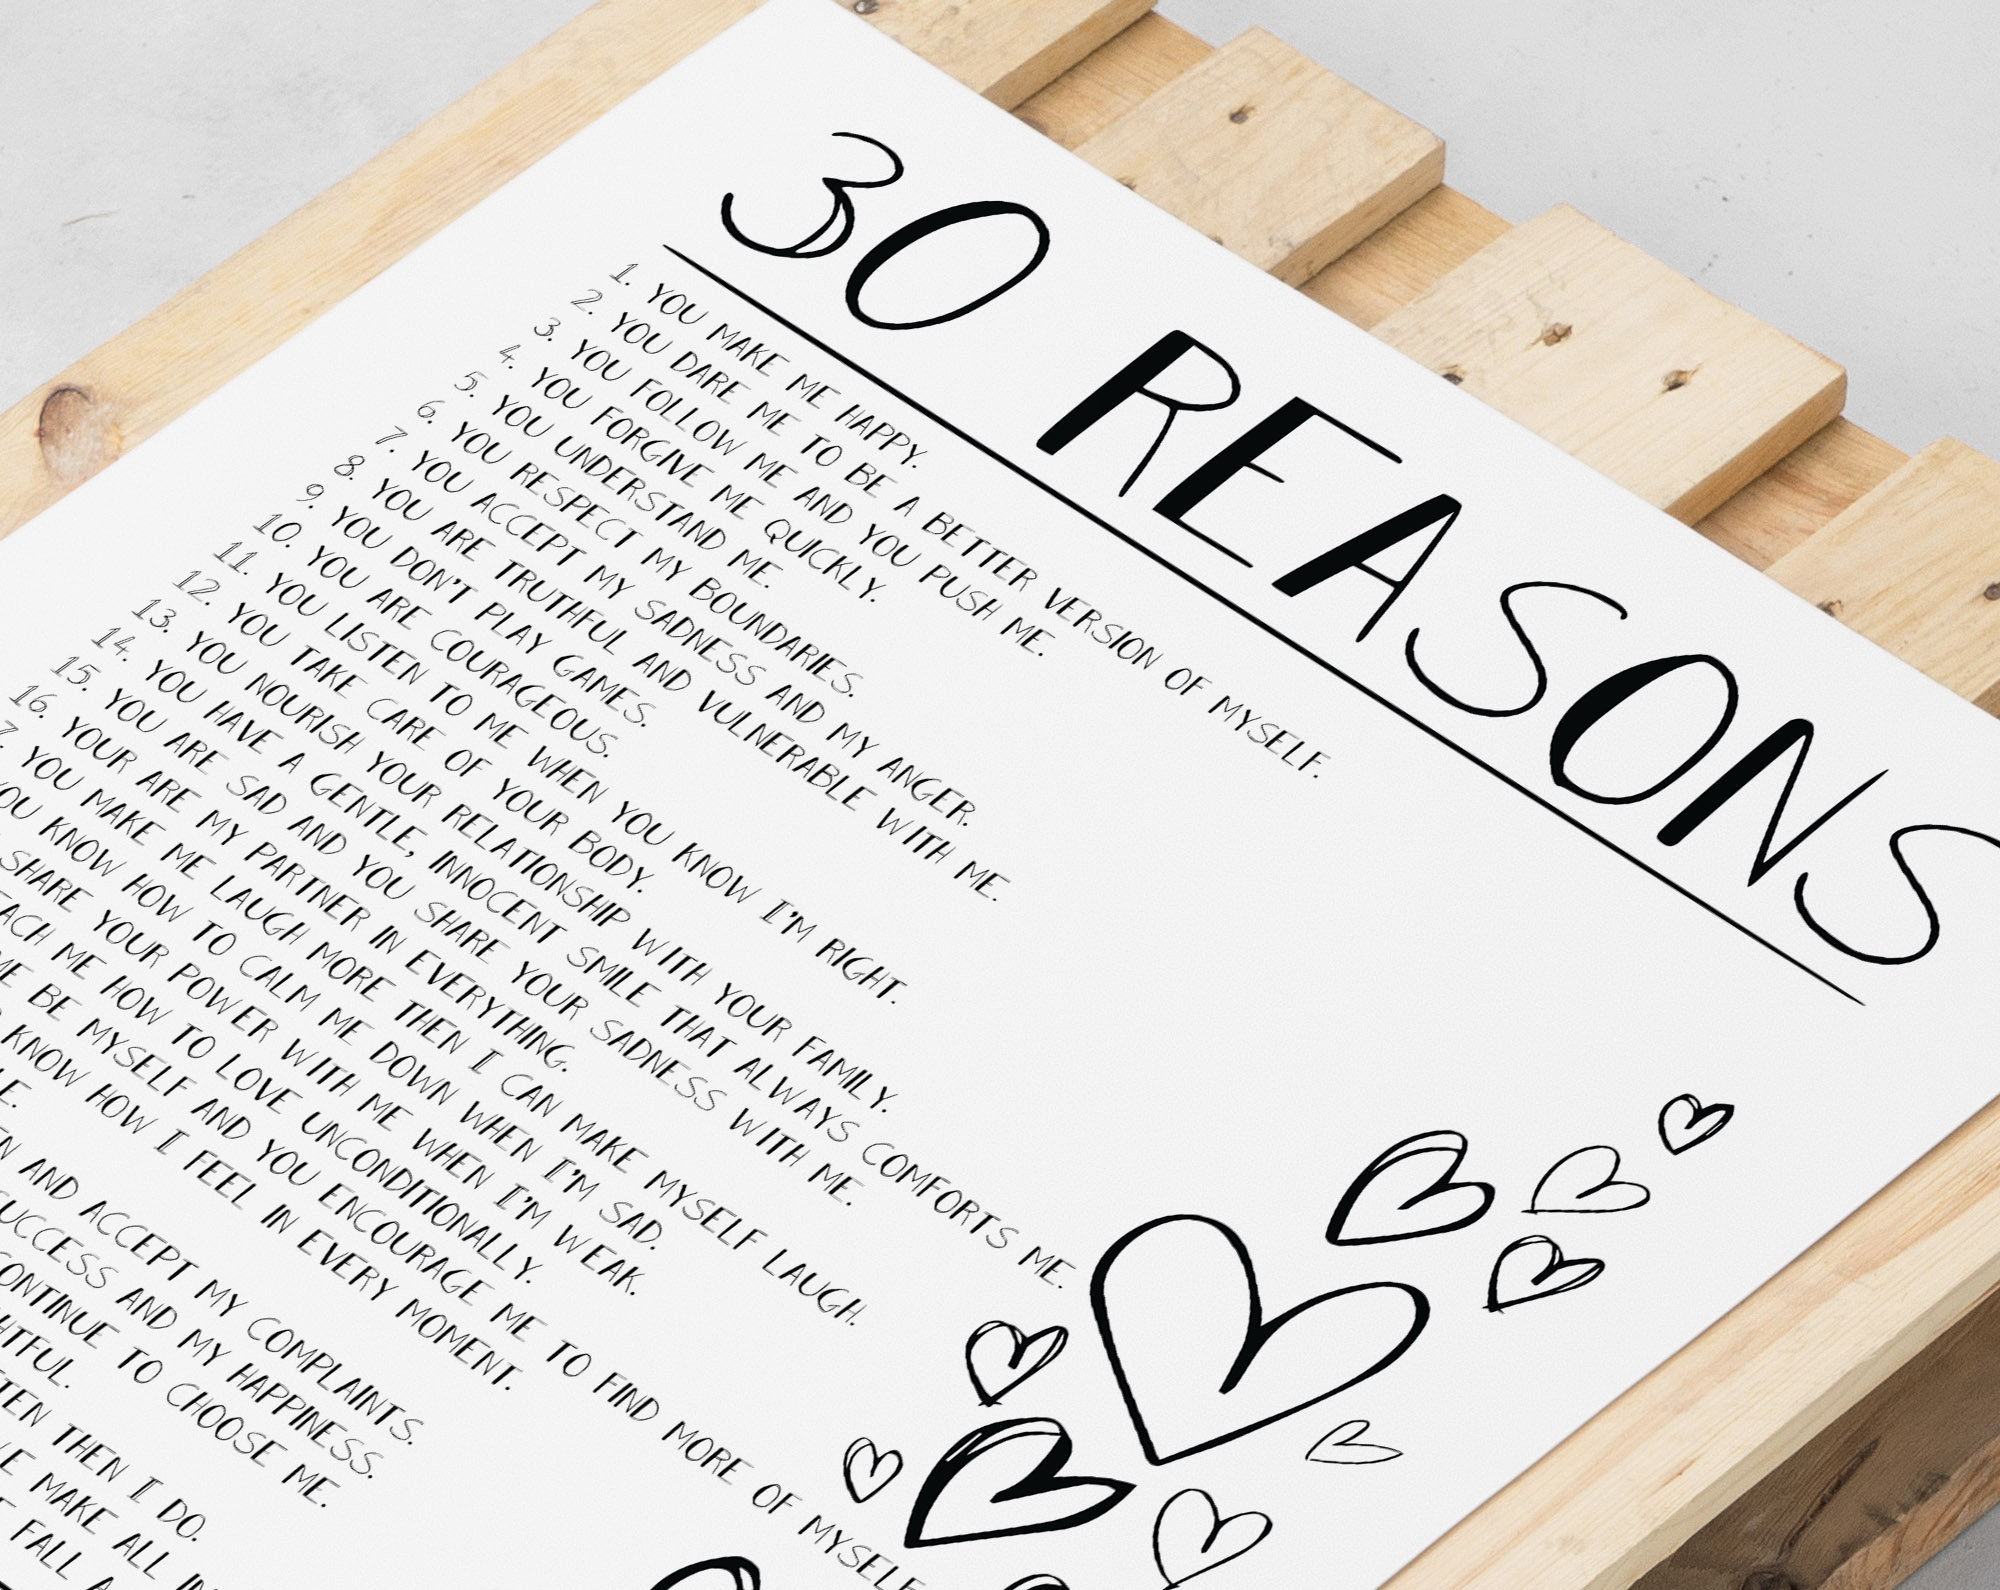 30 REASONS
1. YOU MAKE ME HAPPY.
2. YOU DARE ME TO BE A BETTER VERSION OF MYSELF.
3. YOU FOLLOW ME AND YOU PUSH ME.
4. YOU FORGIVE ME QUICKLY.
5. YOU UNDERSTAND ME.
6. YOU RESPECT MY BOUNDARIES.
7. YOU ACCEPT MY SADNESS AND MY ANGER.
8. YOU ARE TRUTHFUL AND VULNERABLE WITH ME.
9. YOU DON'T PLAY GAMES.
10. YOU ARE COURAGEOUS.
11. YOU LISTEN TO ME WHEN YOU KNOW I'M RIGHT.
12. YOU TAKE CARE OF YOUR BODY.
13. YOU NOURISH YOUR RELATIONSHIP WITH YOUR FAMILY.
14. YOU HAVE A GENTLE, INNOCENT SMILE THAT ALWAYS COMFORTS ME.
15. YOU ARE SAD AND YOU SHARE YOUR SADNESS WITH ME.
16. YOUR ARE MY PARTNER IN EVERYTHING.
7. YOU MAKE ME LAUGH MORE THEN I CAN MAKE MYSELF LAUGH.
YOU KNOW HOW TO CALM ME DOWN WHEN I'M SAD.
SHARE YOUR POWER WITH ME WHEN I'M WEAK.
ME HOW TO LOVE UNCONDITIONALLY.
BE MYSELF AND YOU ENCOURAGE ME TO FIND MORE OF MYSELF
KNOW HOW I FEEL IN EVERY MOMENT.
AND ACCEPT MY COMPLAINTS.
SUCCESS AND MY HAPPINESS.
CONTINUE TO CHOOSE ME.
THEN I DO.
MAKE ALL
FALL